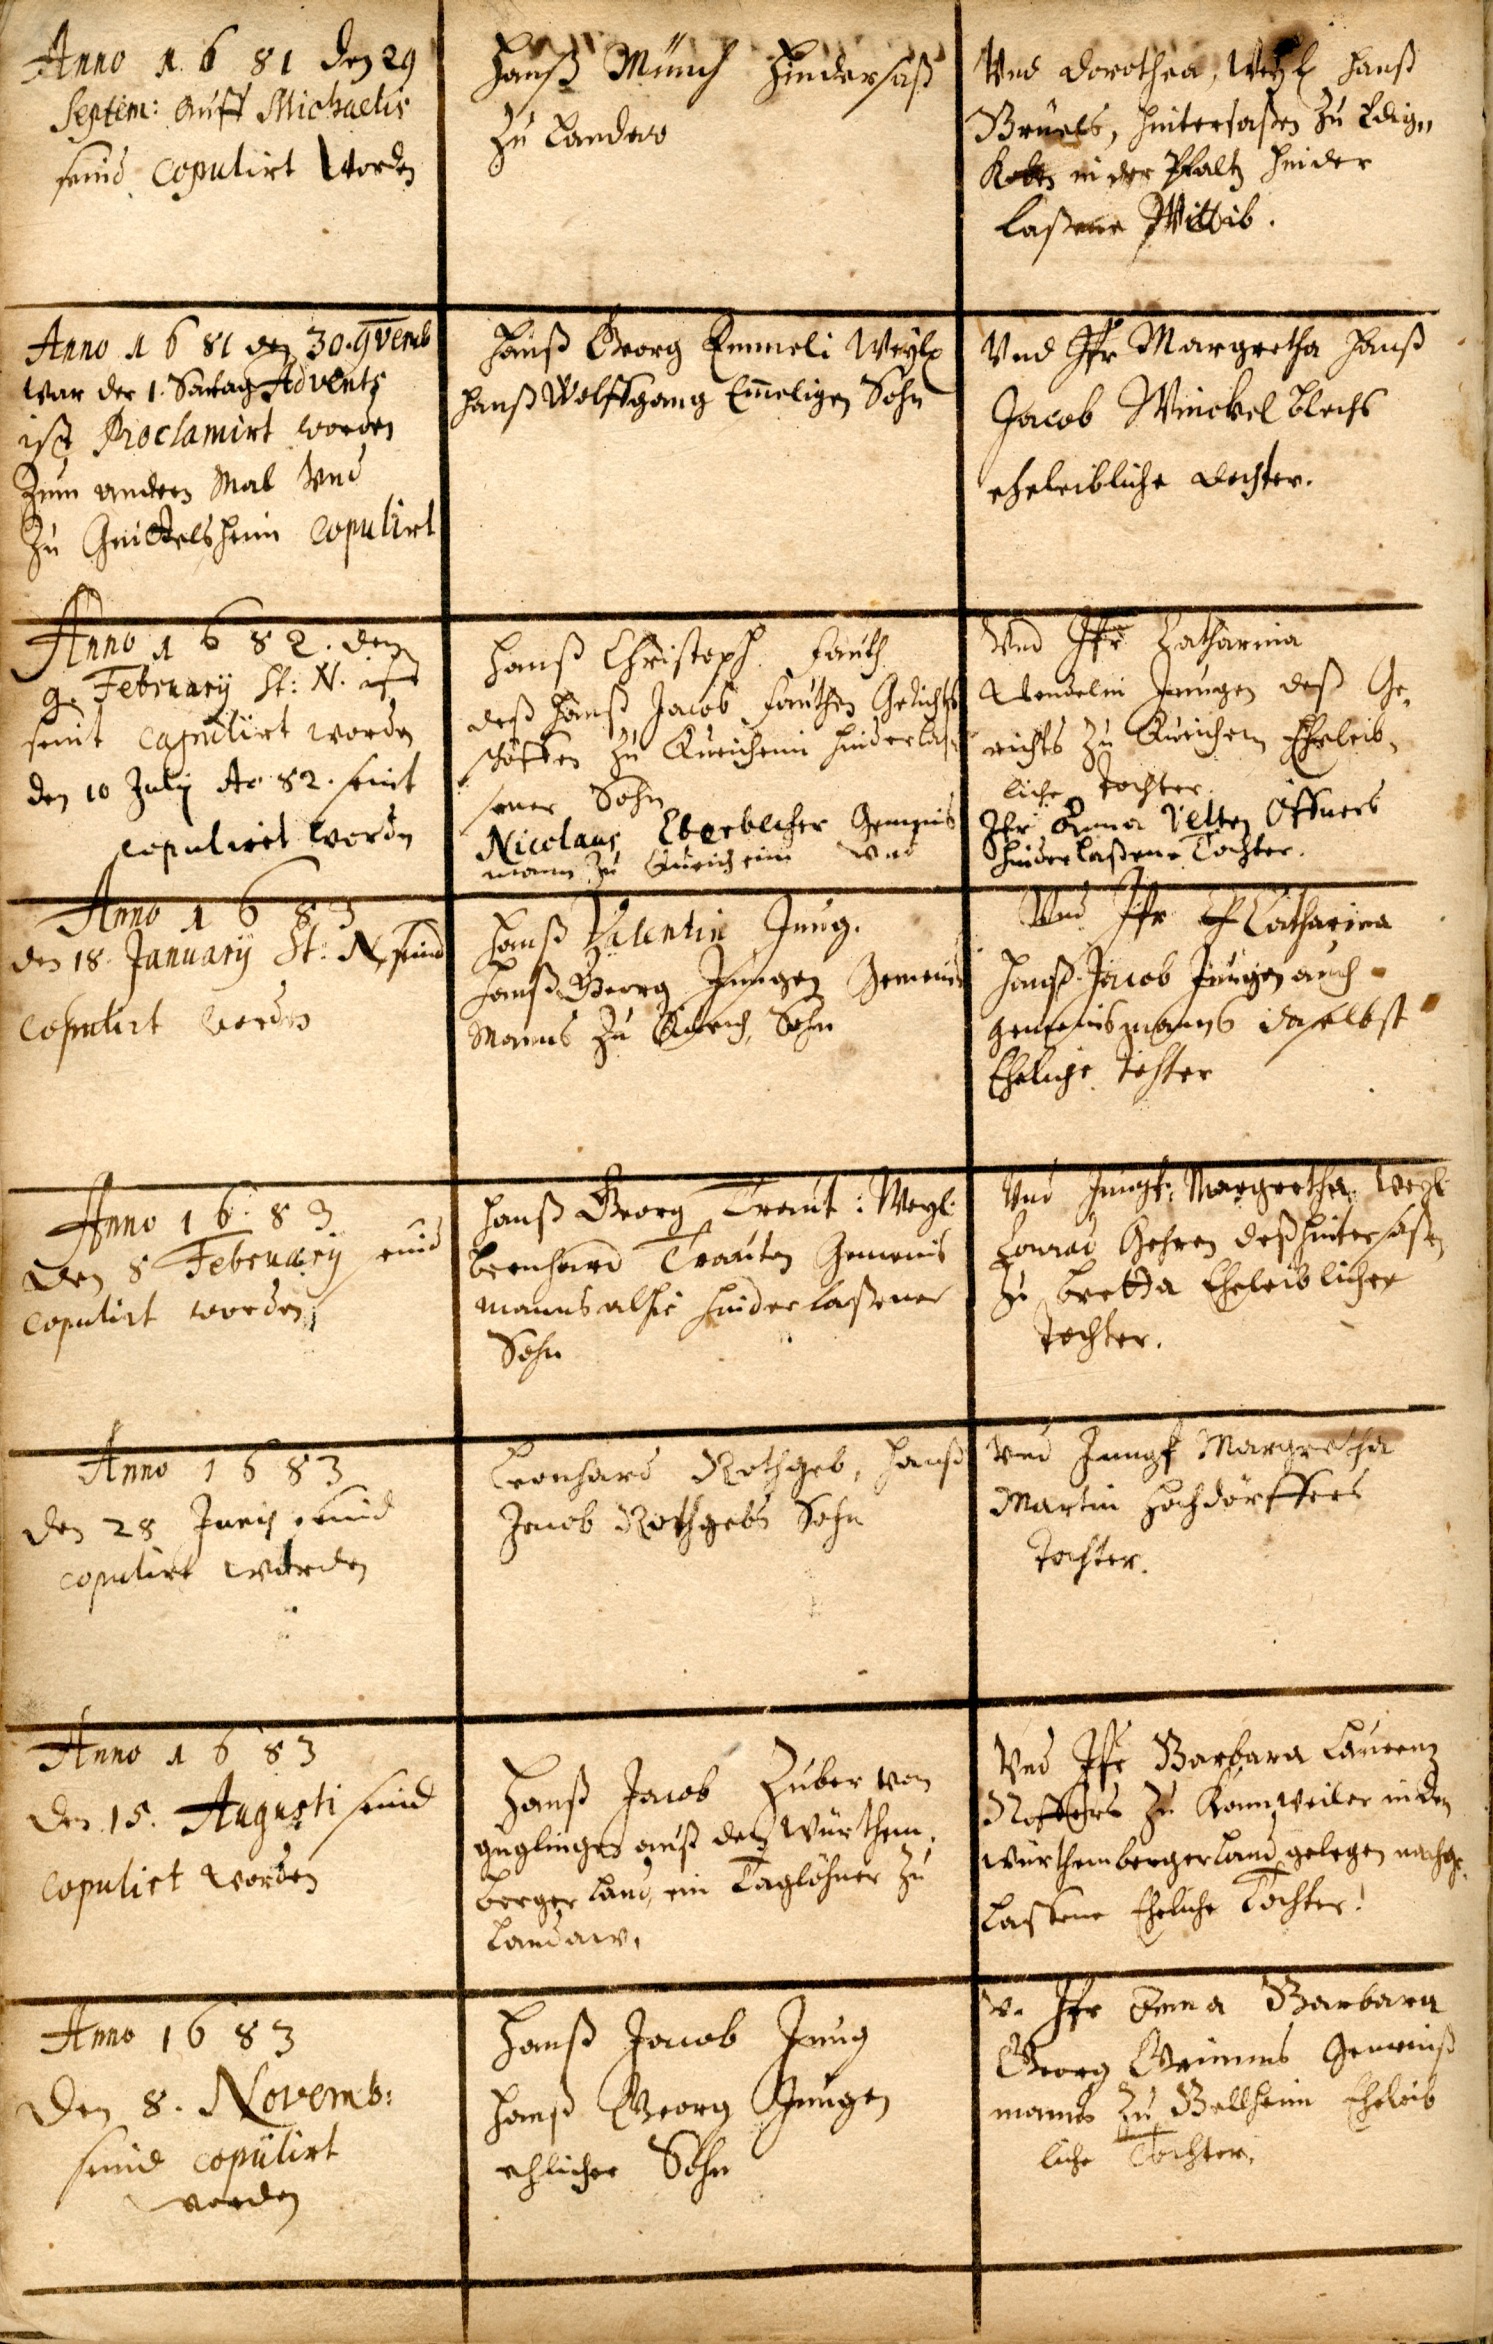 Anno 1681 den 29
Septem: auff Michaelis
seind copulirt worden
Hanß Münch Hindersaß
zu Landaw
Vnd Dorothea, Weyl Hanß
Bruels, hintersaßen zu Edig„
Koben in der Pfaltz hinder
laßene Wittib.
Anno 1681 den 30. 9vemb
war der 1. Sontag Advents
ist Proclamirt worden
Zum andern Mal Vnd
Zu copulirt
Hanß Georg Emmeli Weyl
Hanß Wolffgang Em̄eligen Sohn
Vnd Jfr Margretha Hanß
Jacob Winckel blechs
eheleibliche dochter.
Anno 1682. den
9 February St: N.
seint copulirt worden
den 10 July Ao 82. seint
copulirt worden
Hanß Christoph Fauth
deß Hanß Jacob Fauthen Gerichts
schöffen zu Queicheim hinderlas„
sener Sohn
Nicolaus Eberlecher Gemeins
mann zu Queicheim Vnd
Vnd Jfr Catharina
Wendelin Jungen deß Ge„
richts zu Queichem Eheleib„
liche Tochter.
Jfr Anna Velten Öffners
hinderlaßene Tochter.
Anno 1683
den 18. January St: N. seind
copulirt worden
Hanß Valentin Jung.
Hanß Georg Jungen Gemeins
Manns zu Queich, Sohn
Vnd Jfr Catharina
Hanß Jacob Jungen auch
gemeinsmanns daselbst
Eheliche Tochter
Anno 1683
den 8 February seind
copulirt worden,
Hanß Georg Traut: Weyl.
bernhard Trauten Gemeins
manns alhie hinderlaßener
Sohn
Vnd Jungf: Margretha, Weyl
Conrad Gehren deß hintersaßen
zu bretta Eheleibliche
Tochter.
Anno 1683
den 28 Junij seind
copulirt worden
Leonhard Rothgeb, Hanß
Jacob Rothgebs Sohn
Vnd Jungf Margretha
Martin Hochdörffers
Tochter.
Anno 1683
den 15. Augusti seind
copulirt worden
Hanß Jacob Zuber von
güglingen auß dem Würthem„
berger Land, ein Taglöhner zu
Landaw.
Vnd Jfr Barbara Laurenz
zu Konnweiler in dem
würthembergerland gelegen nachge„
lassene Eheliche Tochter.
Anno 1683
Den 8. Novemb:
seind copulirt
worden
Hanß Jacob Jung
Hanß Georg Jungen
ehlicher Sohn
V. Jfr Anna Barbara
Georg Grimms Gemeinß
manns zu Bellheim Eheleib
liche Tochter.